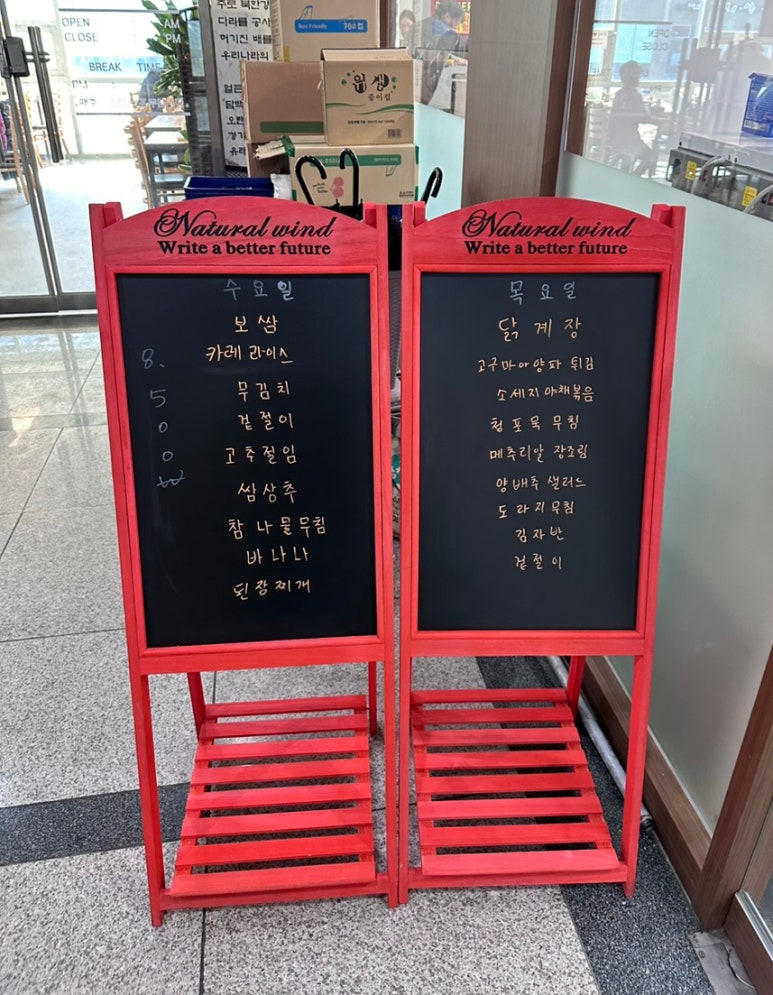 OPEN
CLOSE
BREAK TIME
AM
PM
PM
주로 북한강
다리를 공사
허기진 배를
우리나라의
얼큰
닭백
오랜
경기
유래
Best Friendly
위생
종이컵
OPEN
CLOSE
Natural wind
Write a better future
수요일
보쌈
카레 라이스
무김치
겉절이
고추절임
쌈상추
참나물무침
바나나
된장찌개
8.
5
0
0
₩
Natural wind
Write a better future
목요일
닭계장
고구마야양파 튀김
소세지야채볶음
청포묵무침
메추리알 장조림
양배추 샐러드
도라지무침
김자반
겉절이